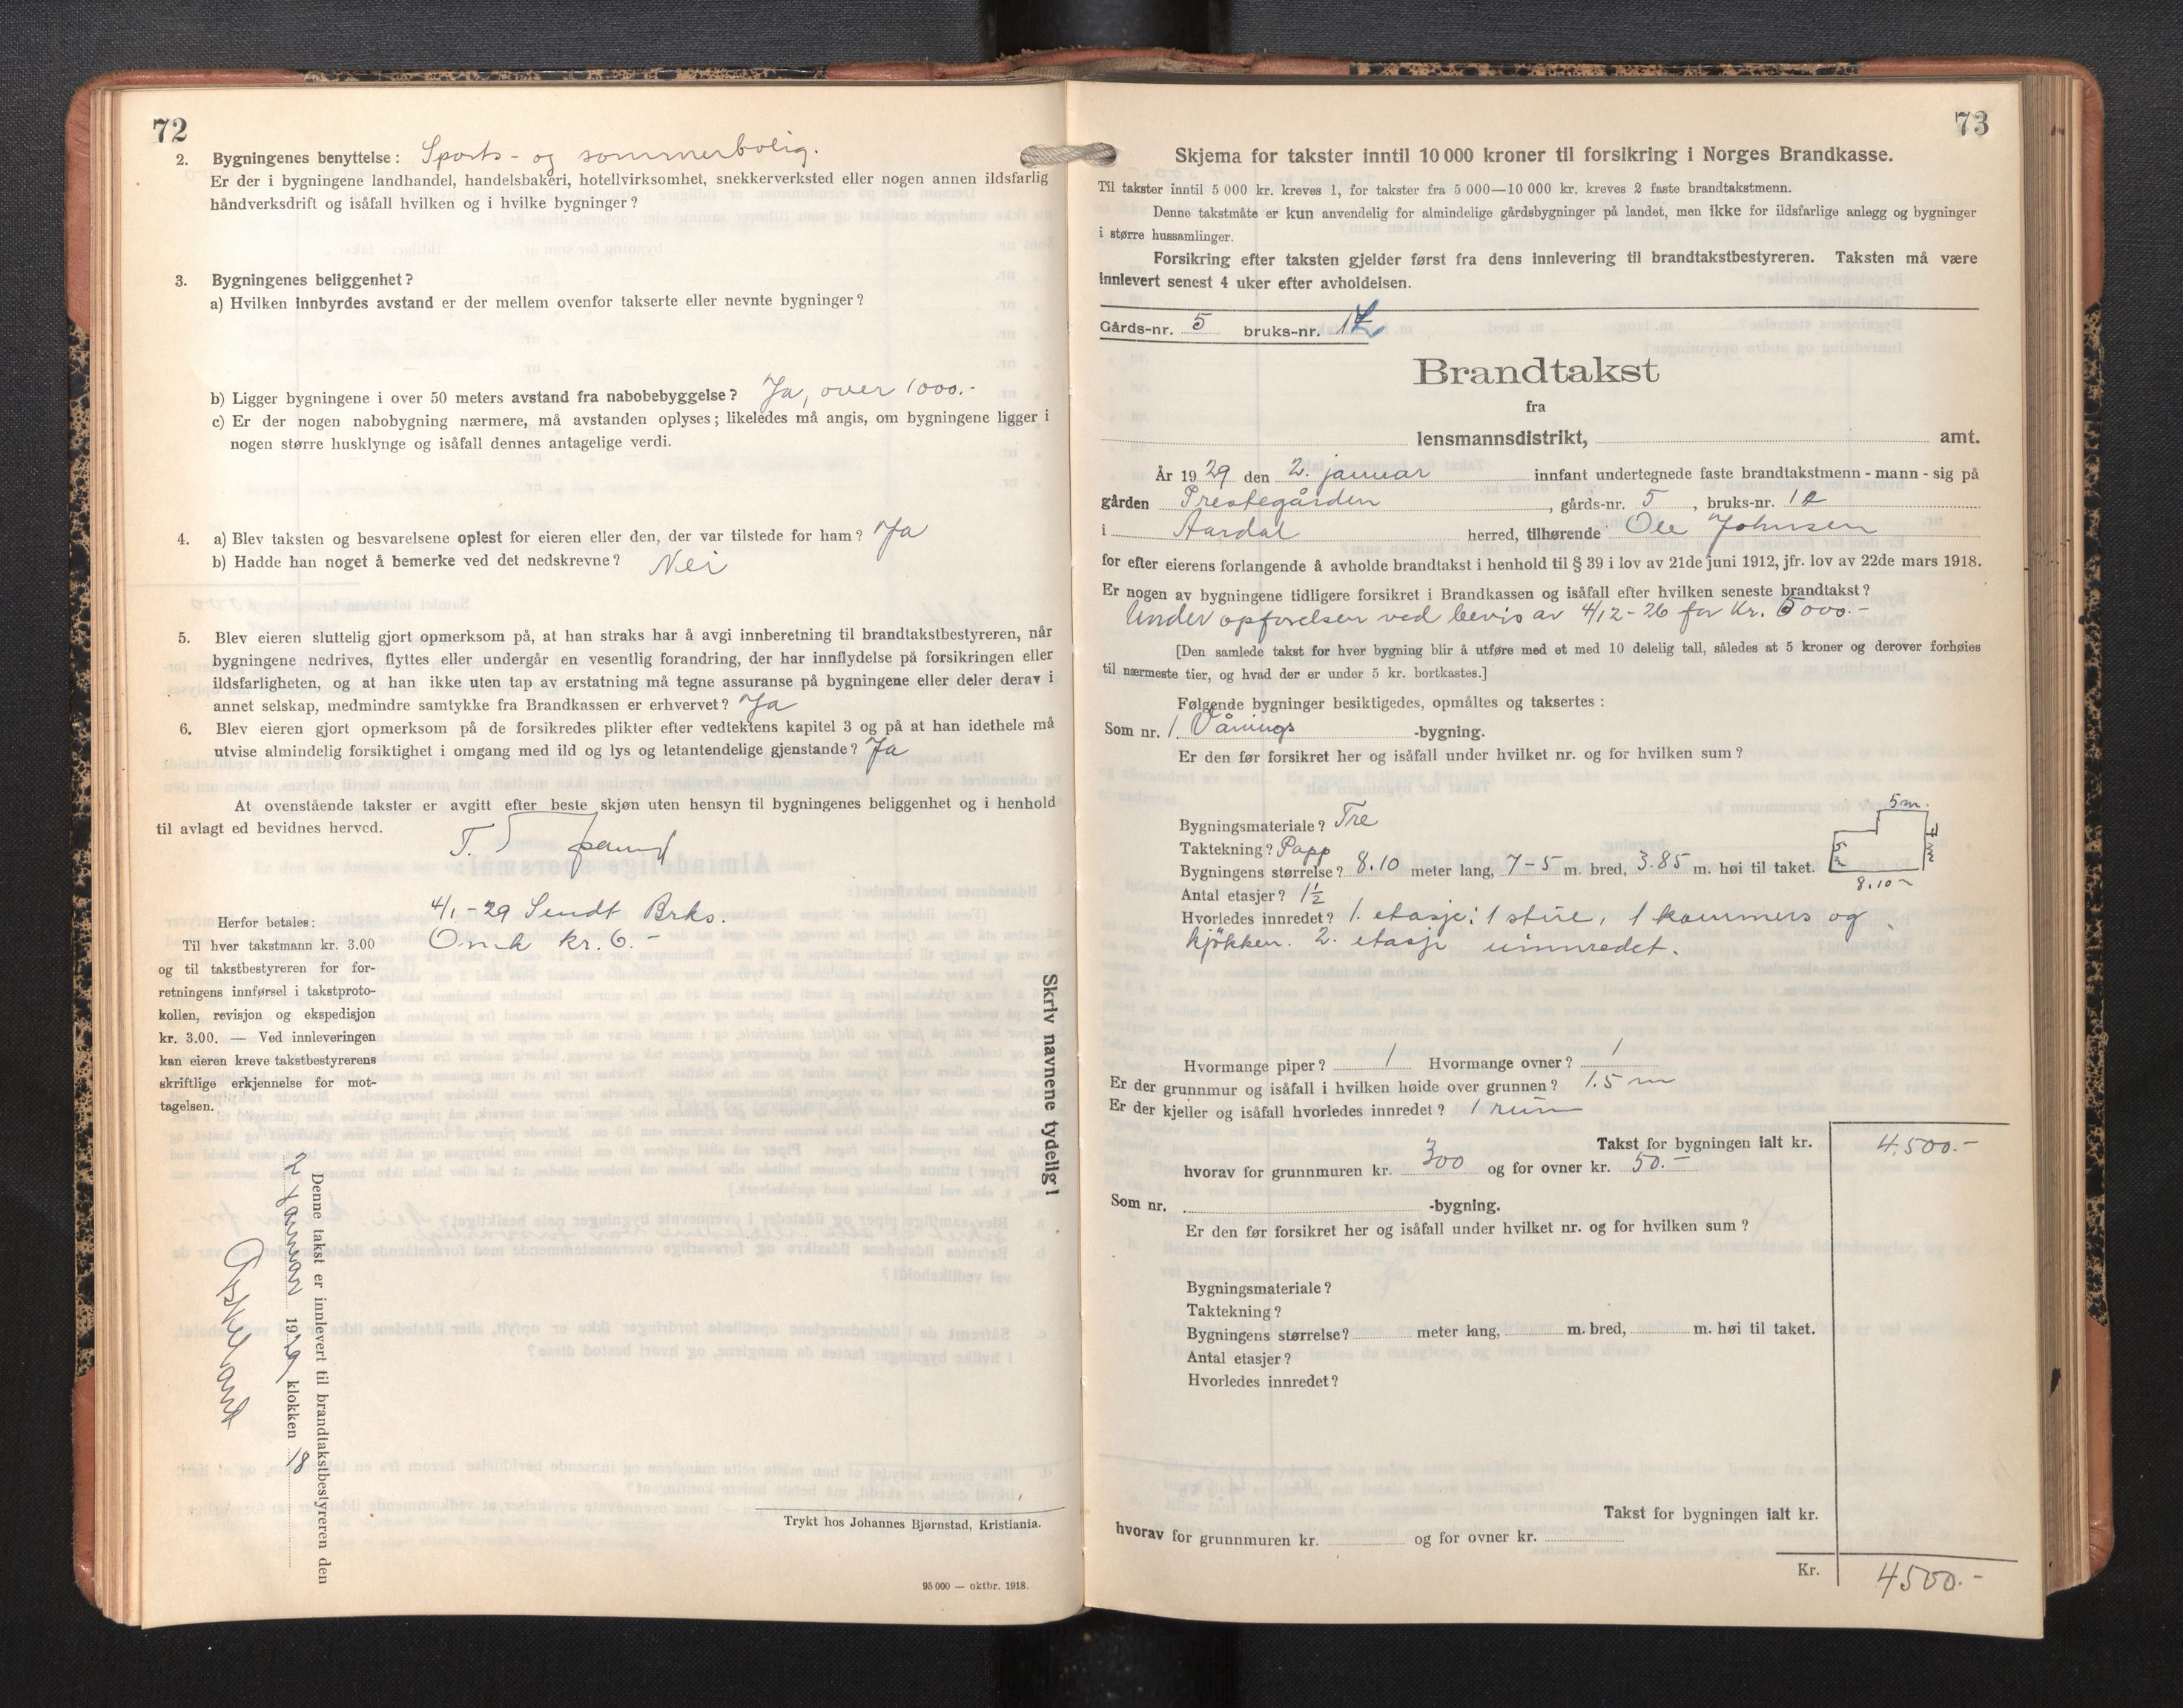 72
2. Bygningenes benyttelse: Sports- og sommerbolig.
Er der i bygningene landhandel, handelsbakeri, hotellvirksomhet, snekkerverksted eller nogen annen ildsfarlig
håndverksdrift og isåfall hvilken og i hvilke bygninger?
3. Bygningenes beliggenhet?
a) Hvilken innbyrdes avstand er der mellem ovenfor takserte eller nevnte bygninger?
b) Ligger bygningene i over 50 meters avstand fra nabobebyggelse? Ja, over 1000.-
c) Er der nogen nabobygning nærmere, må avstanden oplyses; likeledes må angis, om bygningene ligger i
nogen større husklynge og isåfall dennes antagelige verdi.
4. a) Blev taksten og besvarelsene oplest for eieren eller den, der var tilstede for ham? Ja
b) Hadde han noget å bemerke ved det nedskrevne? Nei
5. Blev eieren sluttelig gjort opmerksom på, at han straks har å avgi innberetning til brandtakstbestyreren, når
bygningene nedrives, flyttes eller undergår en vesentlig forandring, der har innflydelse på forsikringen eller
ildsfarligheten, og at han ikke uten tap av erstatning må tegne assuranse på bygningene eller deler derav i
annet selskap, medmindre samtykke fra Brandkassen er erhvervet? Ja
6. Blev eieren gjort opmerksom på de forsikredes plikter efter vedtektens kapitel 3 og på at han idethele må
utvise almindelig forsiktighet i omgang med ild og lys og letantendelige gjenstande? Ja
At ovenstående takster er avgitt efter beste skjøn uten hensyn til bygningenes beliggenhet og i henhold
til avlagt ed bevidnes herved.
4/1-29 Sendt Brks.
kr. 6.-
Herfor betales:
Til hver takstmann kr. 3.00
og til takstbestyreren for for-
retningens innførsel i takstproto-
kollen, revisjon og ekspedisjon
kr. 3.00. — Ved innleveringen
kan eieren kreve takstbestyrerens
skriftlige erkjennelse for mot-
tagelsen.
Skriv navnene tydelig!
Denne takst er innlevert til brandtakstbestyreren den
2 januar 1929 klokken 18
Trykt hos Johannes Bjørnstad, Kristiania.
95 000 — oktbr. 1918.
73
Skjema for takster inntil 10 000 kroner til forsikring i Norges Brandkasse.
Til takster inntil 5 000 kr. kreves 1, for takster fra 5 000—10 000 kr. kreves 2 faste brandtakstmenn.
Denne takstmåte er kun anvendelig for almindelige gårdsbygninger på landet, men ikke for ildsfarlige anlegg og bygninger
i større hussamlinger.
Forsikring efter taksten gjelder først fra dens innlevering til brandtakstbestyreren. Taksten må være
innlevert senest 4 uker efter avholdelsen.
Gårds-nr. 5 bruks-nr.
Brandtakst
fra
lensmannsdistrikt, amt.
År 1929 den 2. januar innfant undertegnede faste brandtakstmenn - mann - sig på
gården Prestegården, gårds-nr. 5, bruks-nr. 12
i Aardal herred, tilhørende Ole Johnsen
for efter eierens forlangende å avholde brandtakst i henhold til § 39 i lov av 21de juni 1912, jfr. lov av 22de mars 1918.
Er nogen av bygningene tidligere forsikret i Brandkassen og isåfall efter hvilken seneste brandtakst?
Under opførelsen ved bevis av 4/12-26 for Kr. 5000.-
[Den samlede takst for hver bygning blir å utføre med et med 10 delelig tall, således at 5 kroner og derover forhøies
til nærmeste tier, og hvad der er under 5 kr. bortkastes.]
Følgende bygninger besiktigedes, opmåltes og taksertes:
Som nr. 1 Vånings -bygning.
Er den før forsikret her og isåfall under hvilket nr. og for hvilken sum?
5 m.
Bygningsmateriale? Tre
7 m
Taktekning? Papp
5 m
Bygningens størrelse? 8.10 meter lang, 7-5 m. bred, 3.85 m. høi til taket.
8.10 m
Antal etasjer? 1½
Hvorledes innredet? 1. etasje: 1 stue, 1 kammers og
kjøkken. 2. etasje uinnredet.
Hvormange piper? 1 Hvormange ovner? 1
Er der grunnmur og isåfall i hvilken høide over grunnen? 1.5 m
Er der kjeller og isåfall hvorledes innredet? 1 rum
Takst for bygningen ialt kr. 4.500.-
hvorav for grunnmuren kr. 300 og for ovner kr. 50.-
Som nr. -bygning.
Er den før forsikret her og isåfall under hvilket nr. og for hvilken sum?
Bygningsmateriale?
Taktekning?
Bygningens størrelse? meter lang, m. bred, m. høi til taket.
Antal etasjer?
Hvorledes innredet?
Takst for bygningen ialt kr.
hvorav for grunnmuren kr. og for ovner kr.
Kr. 4500.-